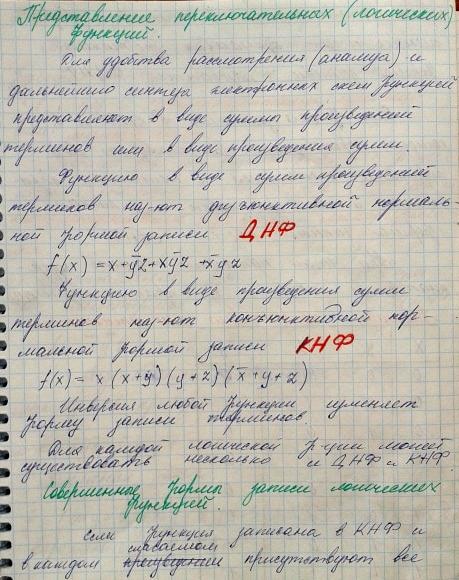 Представление переключательных (логических)
функций.
Для удобства рассмотрения (анализа) и
дальнейшего синтеза электронных схем функцией
представляют в виде суммы произведений
терминов или в виде произведения сумм.
Функцию в виде сумм произведений
терминов наз-ют дизъюнктивной нормаль-
ной формой записи ДНФ
f(x) = x+ȳz+xȳz+x̄yz
Функцию в виде произведения сумм
терминов наз-ют конъюнктивной нор-
мальной формой записи КНФ
f(x) = x (x+y) (y+z) (x̄+y+z)
Инверсия любой функции изменяет
форму записи терминов.
Для каждой логической ф-ции может
существовать несколько и ДНФ и КНФ.
Совершенные формы записи логических
функций.
если функция записана в КНФ и
слагаемом
в каждом произведении присутствуют все